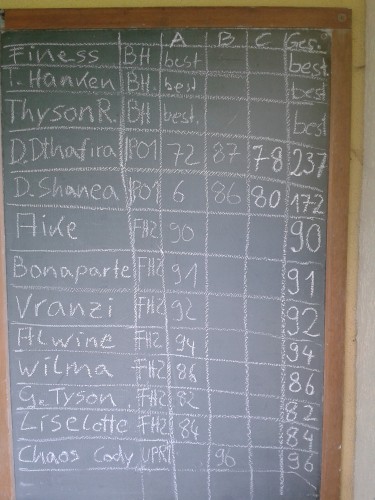 A B C Ges.
Finess BH best best
T. Hanken BH. best best
Thyson R. BH best. best
D. Dthafira IPO1 72 87 78 237
D. Shanea IPO1 6 86 80 172
Aike FH2 90 90
Bonaparte FH2 91 91
Vranzi FH2 92 92
Alwine FH2 94 94
Wilma FH2 86 86
G. Tyson FH2 82 82
Liselotte FH2 84 84
Chaos Cody UPR1 96 96